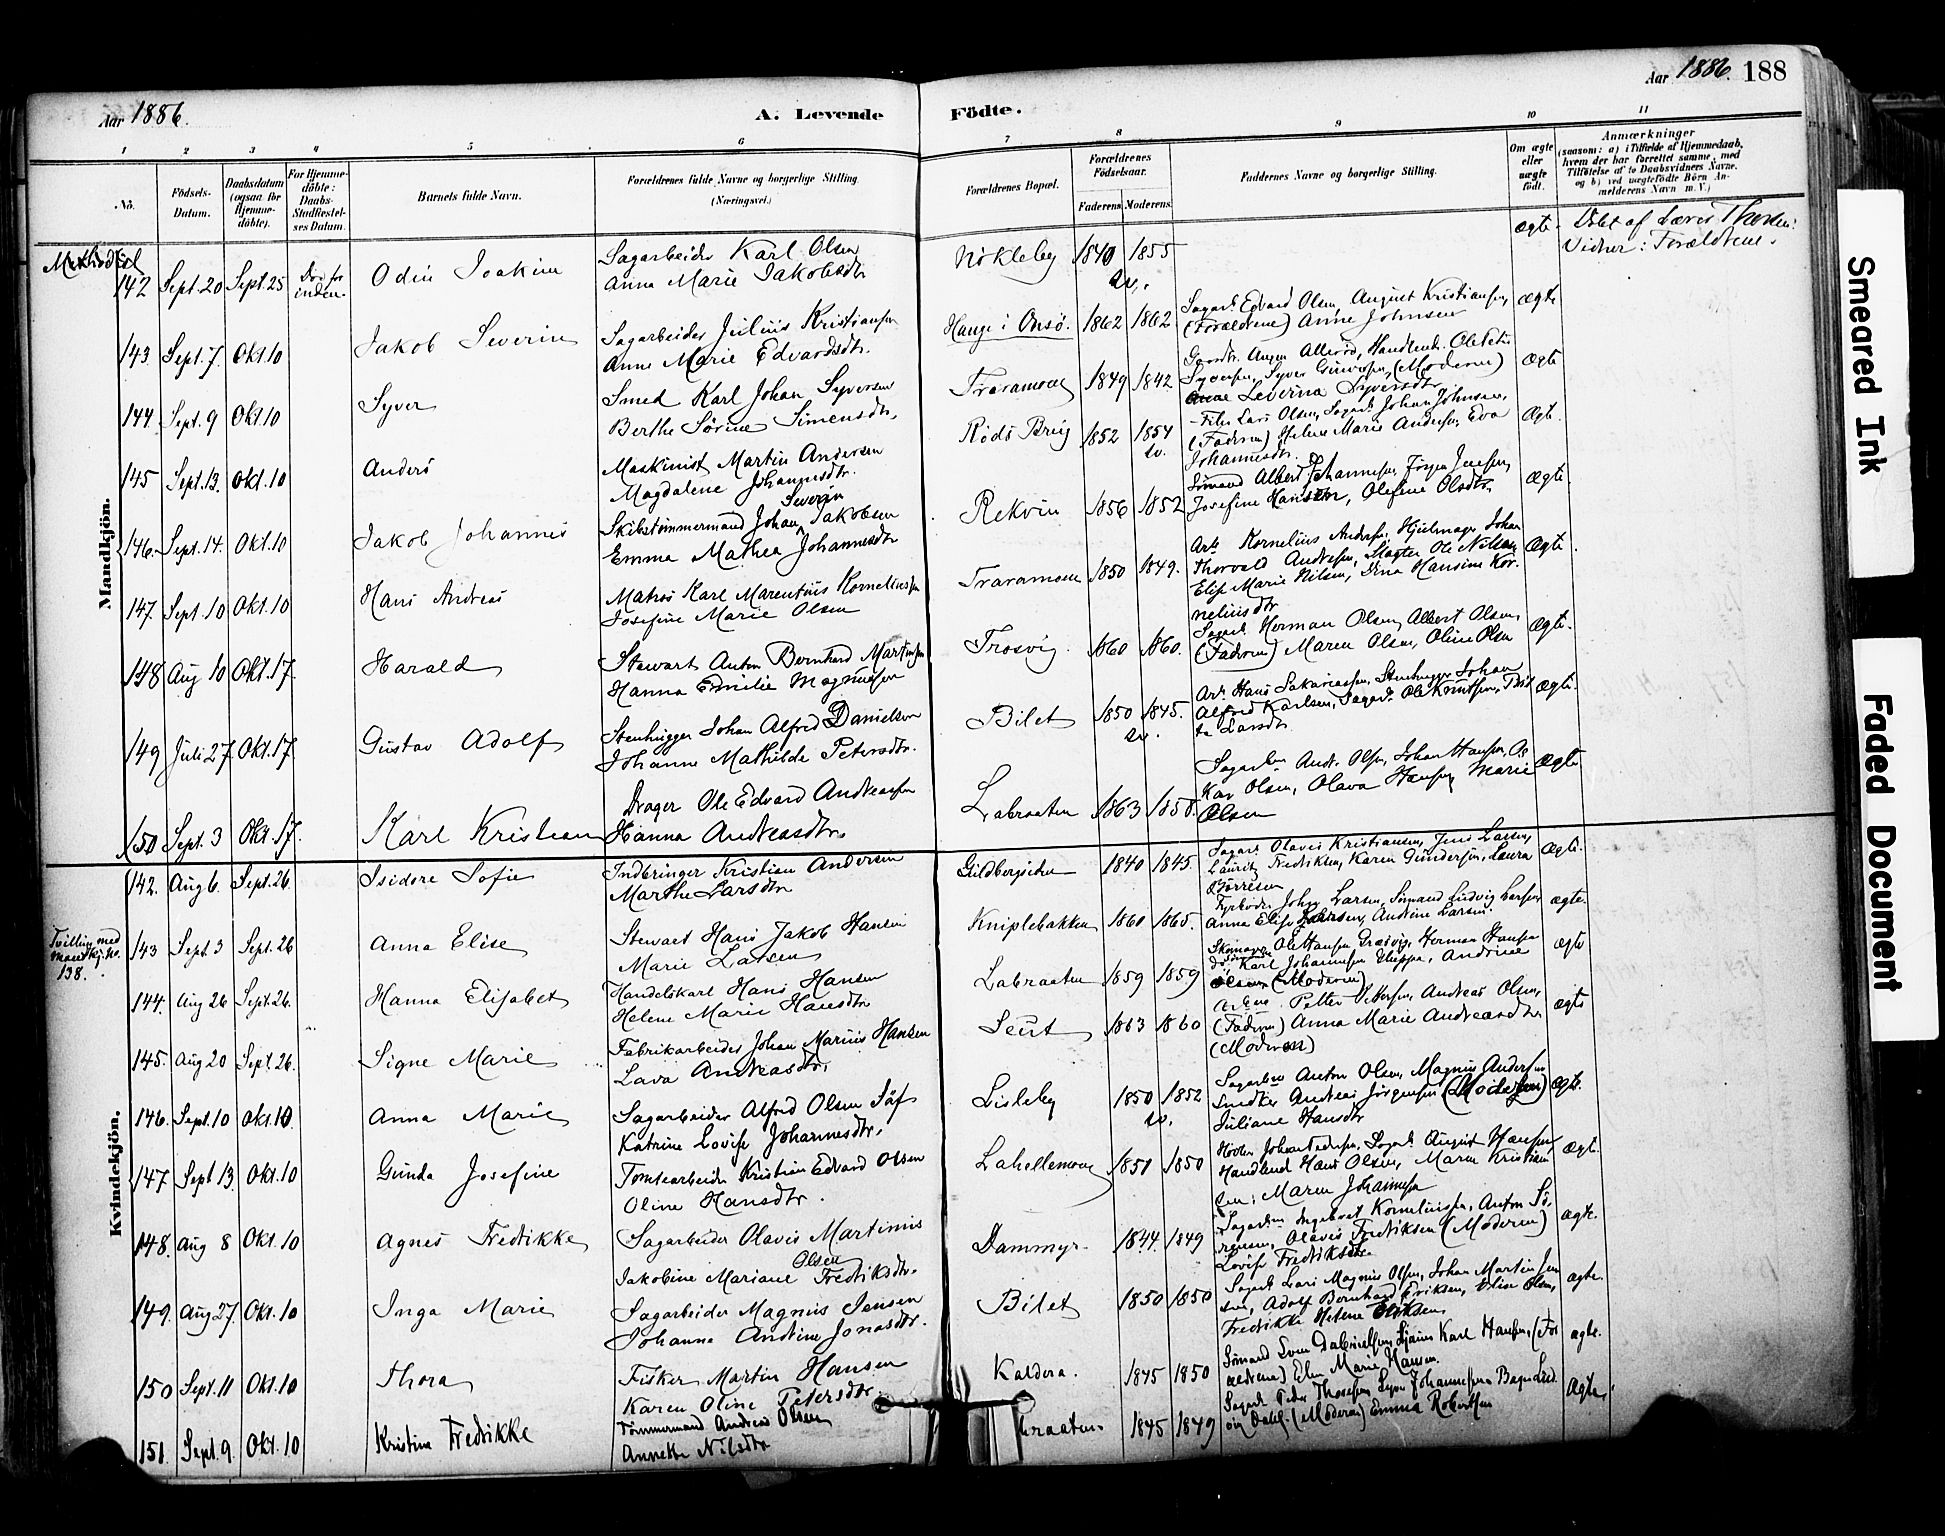 Aar 1886.
A. Levende
Födte.
Aar 1886. 188
1 2 3 4 5 6 7 8 9 10 11
No.
Födsels-Datum.
Daabsdatum (ogsaa for Hjemme-döbte).
For Hjemme-döbte: Daabs-Stadfæstel-ses Datum.
Barnets fulde Navn.
Forældrenes fulde Navne og borgerlige Stilling (Næringsvei.)
Forældrenes Bopæl.
Forældrenes Födselsaar.
Faderens Moderens
Faddernes Navne og borgerlige Stilling.
Om ægte eller uægte födt.
Anmærkninger
(saasom: a) i Tilfælde af Hjemmedaab, hvem der har forrettet samme, med Tilföielse af to Daabsvidners Navne. og b) ved uægtefödte Börn An-melderens Navn m. V.)
Mandkjön.
142 Sept. 20 Sept. 25 Odin Joakim
Sagarbeider Karl Olsen
Anna Marie Jakobsdtr
Nökleby 1840 1855 ægte
Döbt af Lærer
Vidner: Forældrene.
143 Sept. 7 Okt. 10 Jakob Severin
Sagarbeider Julius Kristiansen
Anne Marie Edvardsdtr.
Hauge i Onsö. 1862 1862
Sagarb. Edvard Olsen, August Kristiansen,
(Forældrene) Anne Johnsen
ægte
144 Sept. 9 Okt. 10 Syver
Smed Karl Johan Syversen
Berthe Sörine Simensdtr.
Traramoen 1849 1842
(Moderen)
Severina Syversdtr
ægte
145 Sept. 13. Okt. 10 Anders
Maskinist Martin Andersen
Magdalene Johannesdtr.
Röds Brug 1852 1854
Lars Olsen, Sagarb. Johan Johnsen,
(Faderen) Helene Marie Andersen, Eva
Johannesdtr.
ægt.
146. Sept. 14. Okt. 10 Jakob Johannes
Severin
Skibstömmermand Johan Jakobsen
Emma Mathea Johannesdtr
Rekvin 1856 1852
Sömand Albert Johannesen, Jörgen Jensen,
Josefine Hansdtr, Olefine Olsdtr.
ægte.
147. Sept. 10 Okt. 10 Hans Andreas
Matros Karl Marentius Korneliussen
Josefine Marie Olsen
Traramoen 1850 1849.
Arb. Kornelius Andersen, Hjulmager Johan
Thorvald Andresen, Slagter Ole Nilsen
Elise Marie Nilsen, Dina Hansine Kor-
neliusdtr
ægte
148 Aug 10 Okt. 17. Harald
Stewart Anton Bernhard Martinsen
Hanna Emilie Magnusen
Trosvig. 1860 1860.
Sagarb. Herman Olsen, Albert Olsen,
(Faderen) Maren Olsen, Oline Olsen
ægte.
149 Juli 27 Okt. 17 Gustav Adolf
Stenhugger Johan Alfred Danielsen
Johanne Mathilde Petersdtr.
Bilet 1850 1845.
Arb. Hans Sakariassen, Stenhugger Johan
Alfred Karlsen, Sagarb. Ole Knutsen,
Larsdtr
ægte.
150 Sept. 3 Okt. 17. Karl Kristian
Drager Ole Edvard Andreassen
Hanna Andreasdtr.
Labraaten 1863 1858.
Sagarben Andr. Olsen, Johan Hansen, Os
Kar Olsen, Olava Hansen, Marie
Olsen
ægte
Kvindekjön.
142. Aug 6. Sept. 26. Isidore Sofie
Indbringer Kristian Andersen
Marthe Larsdtr
1840 1845.
Sagarb. Olavis Kristiansen, Jens Larsen,
Lauritz Fredriksen, Karen Gundersen, Laura
ægte.
Tvilling med
Mandkj. No.
138.
143 Sept. 3 Sept. 26 Anna Elise
Stewart Hans Jakob Hansen
Marie Larsen
Kniplebakken 1860 1865.
Johan Larsen, Sömand Ludvig Larsen,
Anna Elise Larsen, Andrine Larsen.
ægte.
144. Aug 26 Sept. 26. Hanna Elisabet
Handelskarl Hans Hansen
Helene Marie Hansdtr
Labraaten 1859 1859
Skomager Ole Hansen Græsvig, Herman Hansen
Karl Johannesen Kleppe, Andrine
Olsen (Moderen)
ægte
145. Aug 20 Sept. 26. Signe Marie
Fabrikarbeider Johan Marius Hansen
Lava Andreasdtr,
Seut 1863 1860
Petter Pettersen, Andreas Olsen,
(Faderen) Anna Marie Andreasdtr
(Moderen)
ægte
146. Sept. 10 Okt. 10 Anna Marie
Sagarbeider Alfred Olsen Säf
Katrine Lovise Johannesdtr.
Lisleby 1850 1852
Sagarben Anton Olsen, Magnus Andersen
Snedker Andreas Jörgensen (Moderen)
Juliane Hansdtr
ægte.
147 Sept 13. Okt. 10 Gunda Josefine
Tomtearbeider Kristian Edvard Olsen
Oline Hansdtr.
Lahellemoen 1851 1850
Johan Pedersen, Sagarb. August Hansen,
Handlend. Hans Olsen, Maren Kristian
sen, Maren Johannesen
ægt.
148. Aug 8 Okt. 10 Agnes Fredrikke
Sagarbeider Olavis Martinius
Olsen
Jakobine Mariane Fredriksdtr.
Dammyr. 1844. 1849
Sagarben Ingebret Korneliusen, Anton Sö-
rensen, Olavis Fredriksen (Moderen)
Lovise Fredriksdtr
ægte.
149. Aug 27. Okt. 10 Inga Marie
Sagarbeider Magnus Jensen
Johanna Andrine Jonasdtr.
Bilet 1850 1850
Sagarb. Lars Magnus Olsen, Johan Martin Jen
sen, Adolf Bernhard Eriksen, Elise Olsen,
Fredrikke Helene Eriksen
ægte.
150 Sept. 11 Okt. 10 Thora
Fisker Martin Hansen
Karen Oline Petersdtr
Kaldera. 1845 1850
Sömand Sven Danielsen, Karl Hansen, (For
ældrene) Elen Marie Hansen.
ægte.
151 Sept. 9 Okt. 10 Kristine Fredrikke
Tömmermand Andreas Olsen
Annette Nilsdtr
1845 1849
Sagarb. Peder Thoresen, Johannesen
(Moderen) Emma Robertsen
ægte.
Smeared Ink
Faded Document